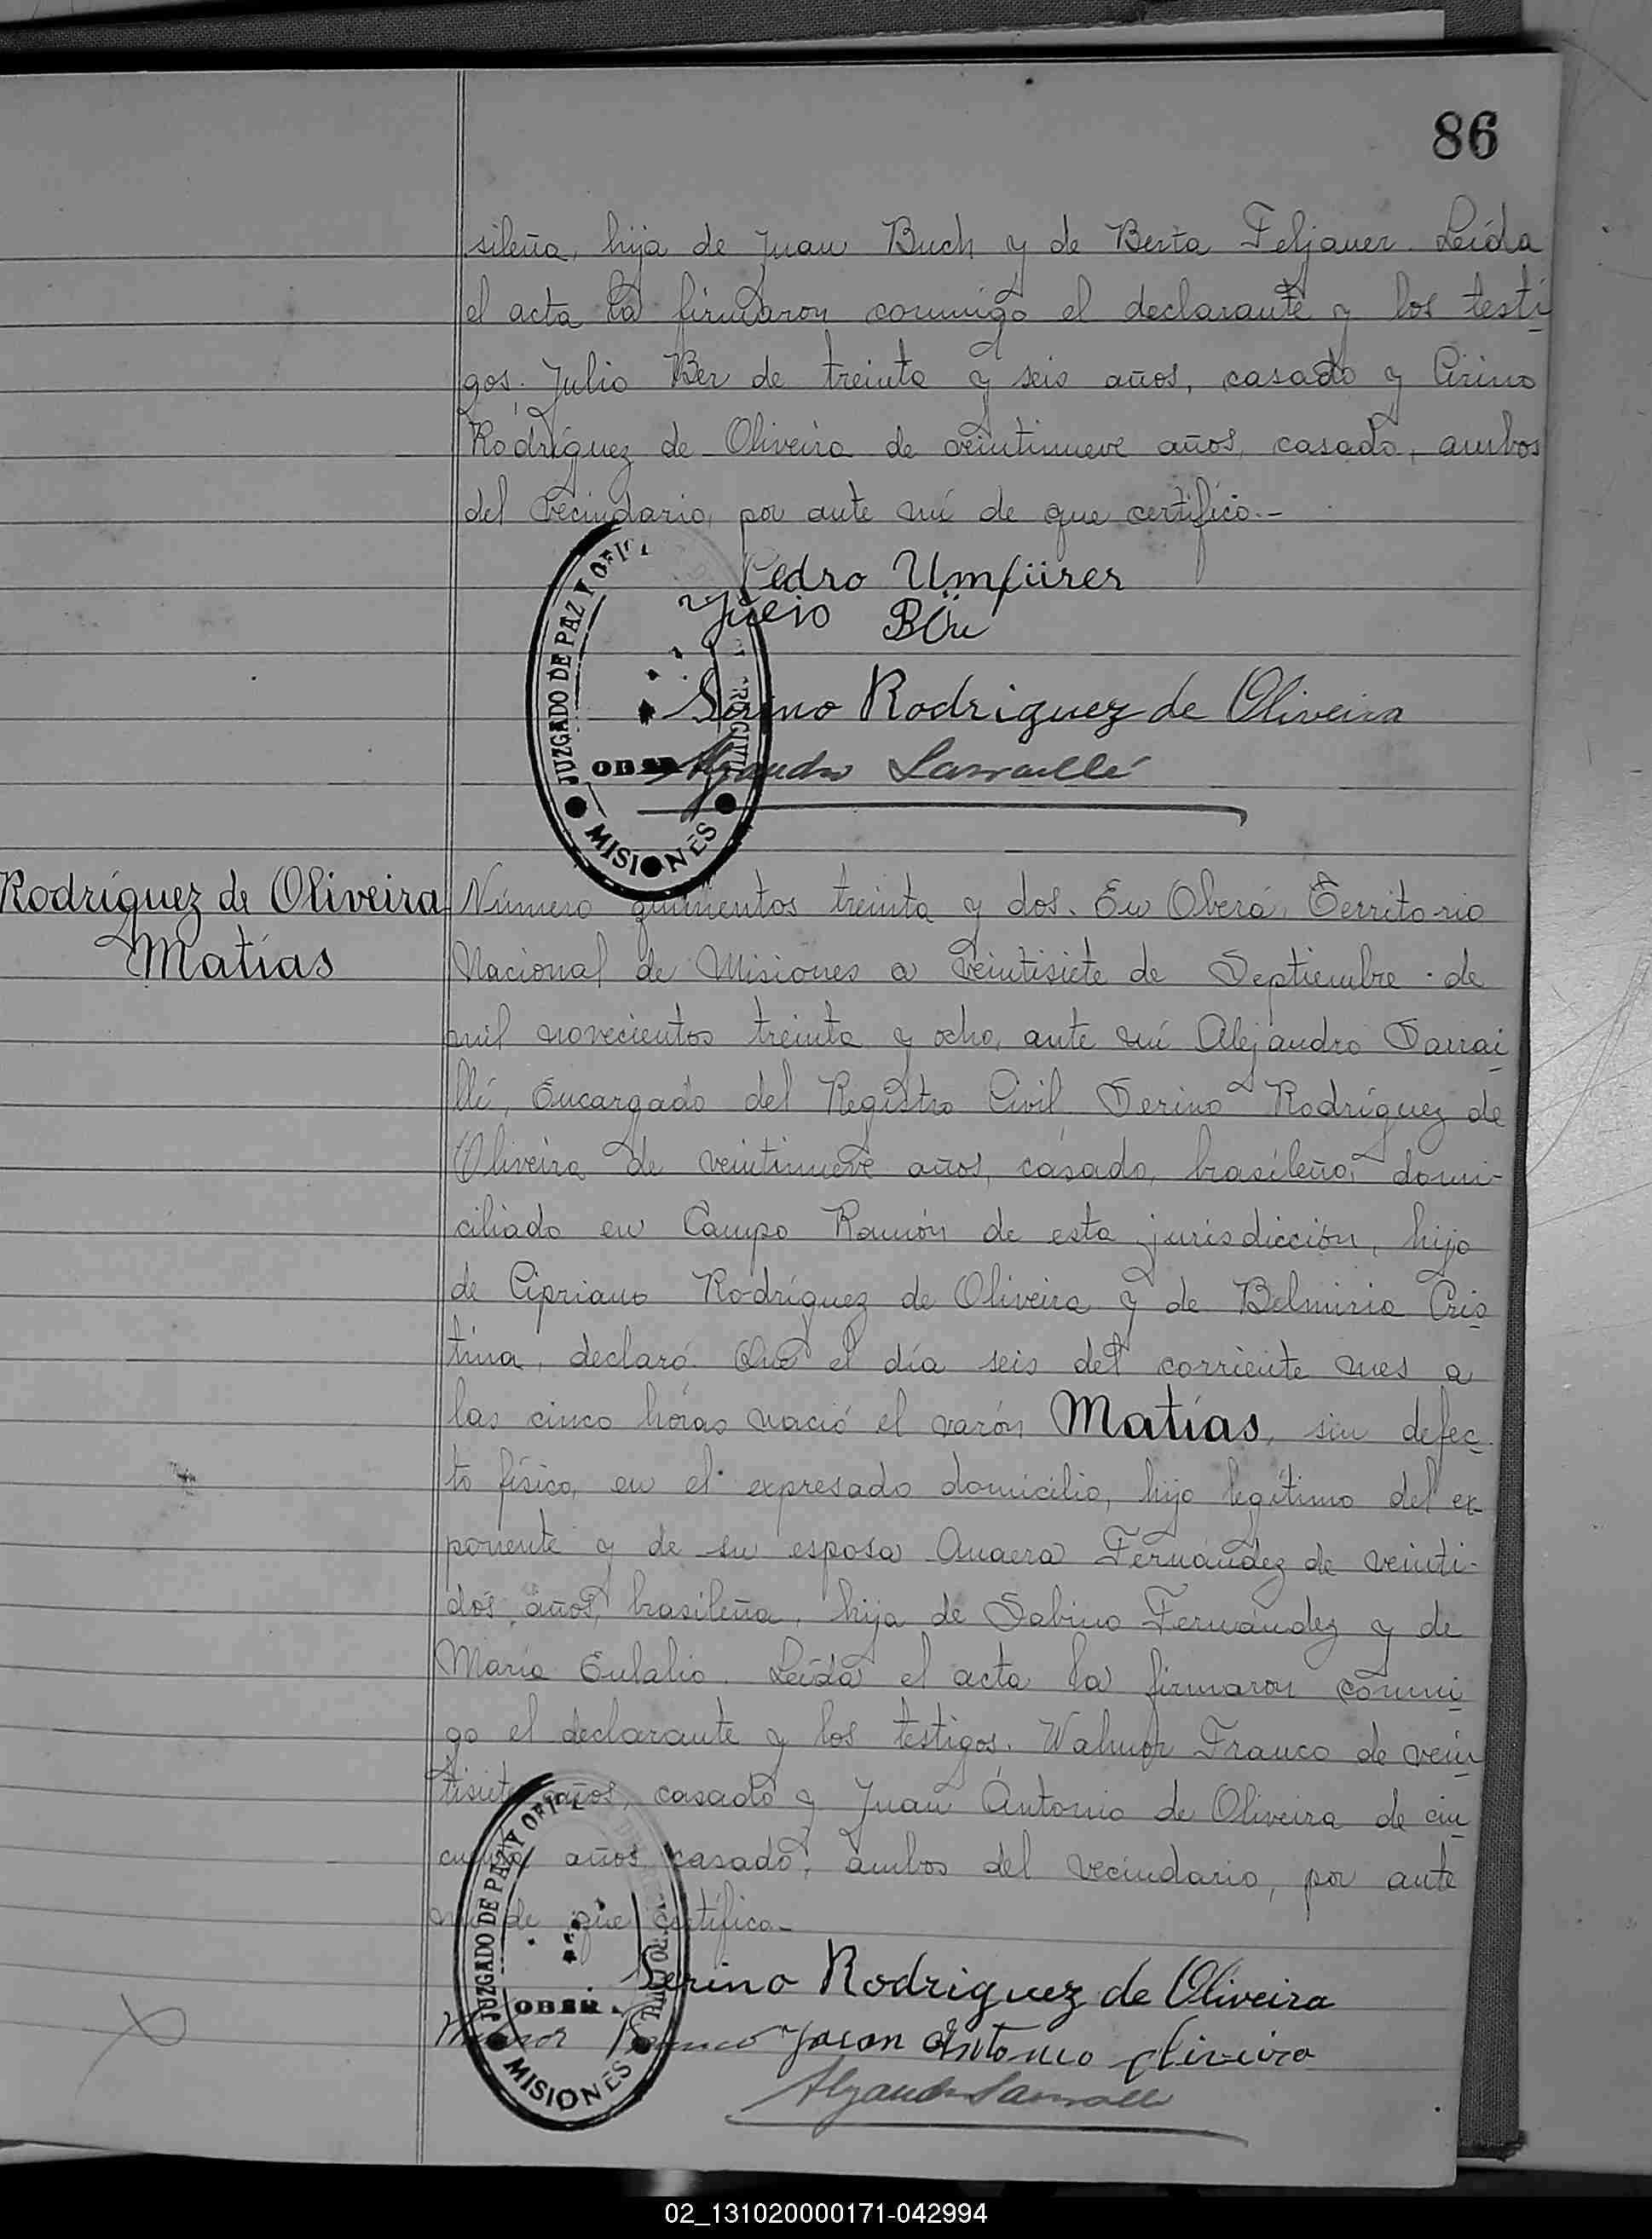 86
sileña, hija de Juan Buch y de Berta Feljauer. Leída
el acta la firmaron conmigo el declarante y los testi
gos. Julio Ber de treinta y seis años, casado y Cirino
Rodríguez de Oliveira de veintinueve años, casado, ambos
del vecindario, por ante mí de que certifico.-
Pedro Umfürer
Serino Rodriguez de Oliveira
Alejandro Sarraillé
JUZGADO DE PAZ Y OFIC
OBER
MISIONES
Rodríguez de Oliveira
Matías
Número quinientos treinta y dos. En Oberá, Territorio
Nacional de Misiones a veintisiete de Septiembre de
mil novecientos treinta y ocho, ante mí Alejandro Sarrai
llé, Encargado del Registro Civil Serino Rodríguez de
Oliveira de veintinueve años, casado, brasileño, domi-
ciliado en Campo Ramón de esta jurisdicción, hijo
de Cipriano Rodríguez de Oliveira y de Belmiria Cris
tina, declaró: Que el día seis del corriente mes a
las cinco horas nació el varón Matías, sin defec
to físico, en el expresado domicilio, hijo legítimo del ex-
ponente y de su esposa Anaera Fernández de veinti-
dós años, brasileña, hija de Sabino Fernández y de
María Eulalia. Leída el acta la firmaron conmi
go el declarante y los testigos. Walmor Franco de vein
tisiete años, casado y Juan Antonio de Oliveira de cin
cuenta años casado, ambos del vecindario, por ante
mí de que certifico-
Serino Rodriguez de Oliveira
Antonio Oliveira
Alejandro Sarraillé
JUZGADO DE PAZ Y OFIC
OBER
MISIONES
02_131020000171-042994